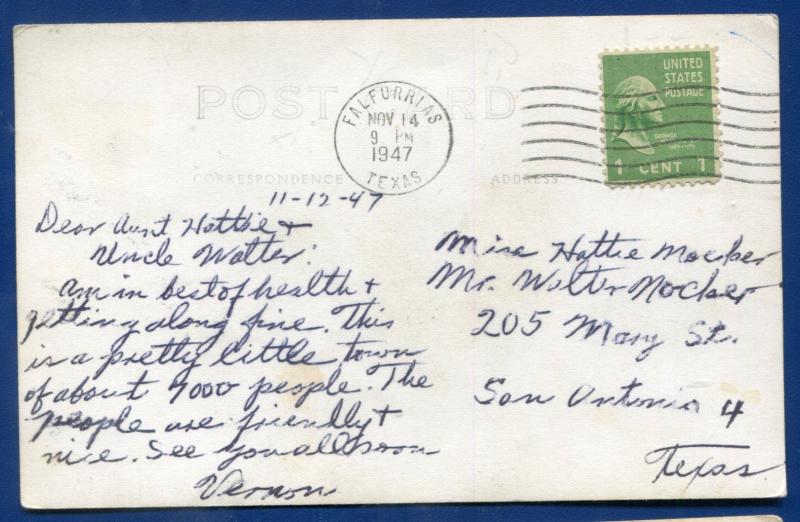 POST CARD
FALFURRIAS
NOV 14
9 PM
1947
TEXAS
UNITED
STATES
POSTAGE
GEORGE
1 CENT 1
CORRESPONDENCE
ADDRESS
11-12-47
Dear Aunt Hattie &
Uncle Walter:
Am in best of health &
getting along fine. This
is a pretty little town
of about 7000 people. The
people are friendly &
nice. See you all soon
Vernon
Miss Hattie
Mr. Walter Mocker
205 Mary St.
San Antonio 4
Texas